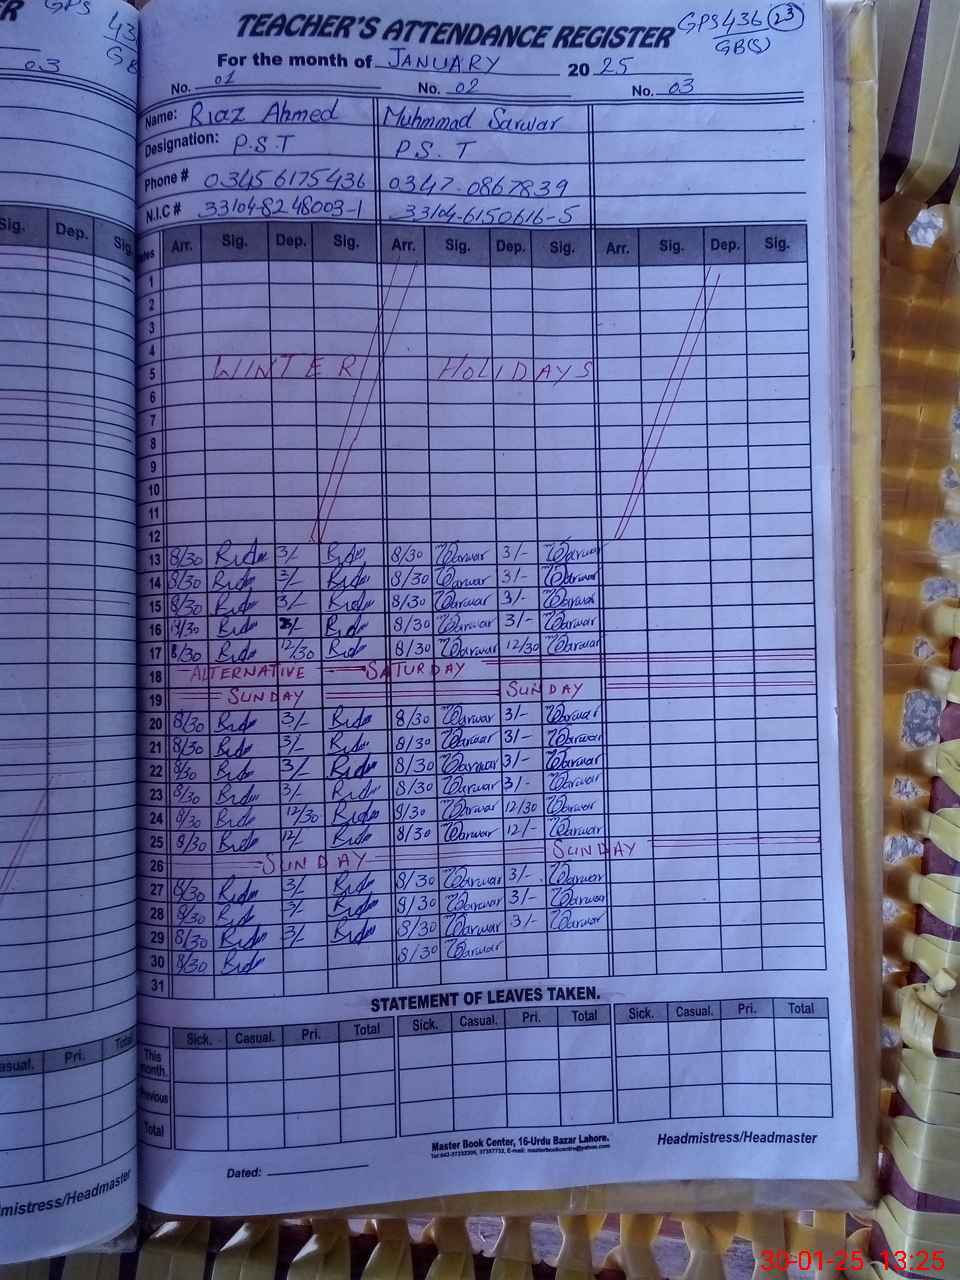 TEACHER'S ATTENDANCE REGISTER GPS 436 (23)
GB(S)
For the month of JANUARY 20 25
No. 01 No. 02 No. 03
Name: Riaz Ahmed Muhmmad Sarwar
Designation: P.S.T P.S.T
Phone # 03456175436 0347-0867839
N.I.C # 33104-8248003-1 33104-6150616-5
Arr. Sig. Dep. Sig. Arr. Sig. Dep. Sig. Arr. Sig. Dep. Sig.
1
2
3
4
5 WINTER HOLIDAYS
6
7
8
9
10
11
12
13 8/30 3/- 8/30 Sarwar 3/- Sarwar
14 8/30 3/- 8/30 Sarwar 3/- Sarwar
15 8/30 3/- 8/30 Sarwar 3/- Sarwar
16 8/30 3/- 8/30 Sarwar 3/- Sarwar
17 8/30 12/30 8/30 Sarwar 12/30 Sarwar
18 ALTERNATIVE SATURDAY
19 SUNDAY SUNDAY
20 8/30 3/- 8/30 Sarwar 3/- Sarwar
21 8/30 3/- 8/30 Sarwar 3/- Sarwar
22 8/30 3/- 8/30 Sarwar 3/- Sarwar
23 8/30 3/- 8/30 Sarwar 3/- Sarwar
24 8/30 12/30 8/30 Sarwar 12/30 Sarwar
25 8/30 12/- 8/30 Sarwar 12/- Sarwar
26 SUNDAY SUNDAY
27 8/30 3/- 8/30 Sarwar 3/- Sarwar
28 8/30 3/- 8/30 Sarwar 3/- Sarwar
29 8/30 3/- 8/30 Sarwar 3/- Sarwar
30 8/30 8/30 Sarwar
31
STATEMENT OF LEAVES TAKEN.
Sick. Casual. Pri. Total Sick. Casual. Pri. Total Sick. Casual. Pri. Total
This month.
Previous
Total
Master Book Center, 16-Urdu Bazar Lahore.
Headmistress/Headmaster
Dated:
30-01-25 13:25